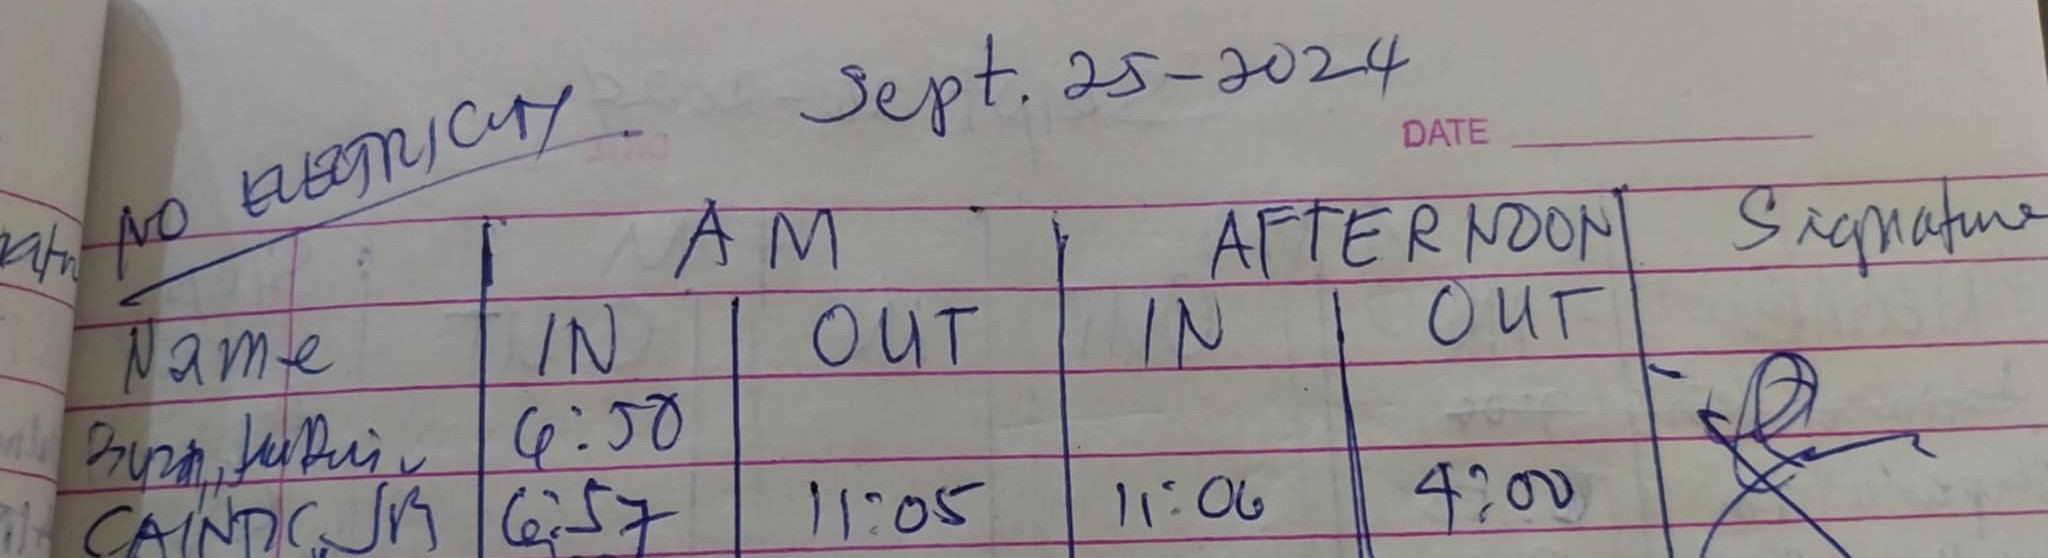 Sept. 25-2024
NO ELECTRICITY
DATE
AM AFTERNOON Signature
Name IN OUT IN OUT
6:50
6:57 11:05 11:06 4:00